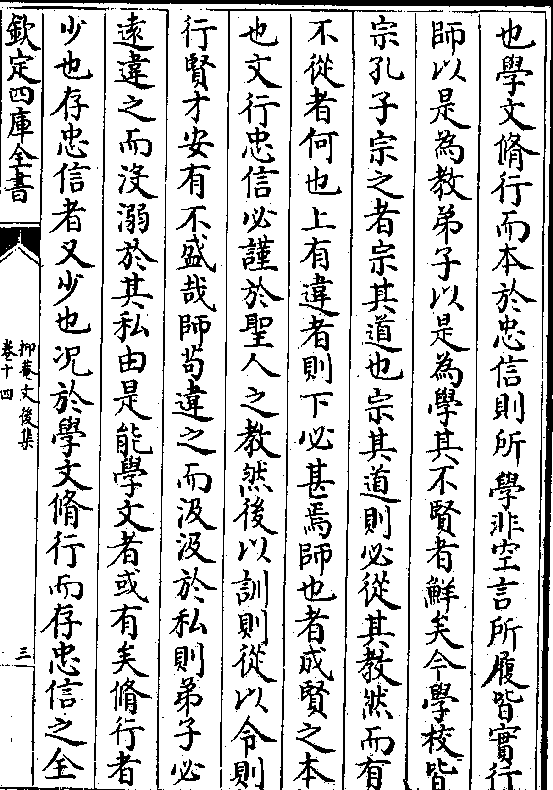 也學文脩行而本於忠信則所學非空言所履皆實行
師以是為教弟子以是為學其不賢者鮮矣今學校皆
宗孔子宗之者宗其道也宗其道則必從其教然而有
不從者何也上有違者則下必甚焉師也者成賢之本
也文行忠信必謹於聖人之教然後以訓則從以令則
行賢才安有不盛哉師苟違之而汲汲於私則弟子必
遠違之而沒溺於其私由是能學文者或有矣脩行者
少也存忠信者又少也况於學文脩行而存忠信之全
欽定四庫全書
抑菴文後集
卷十四
三